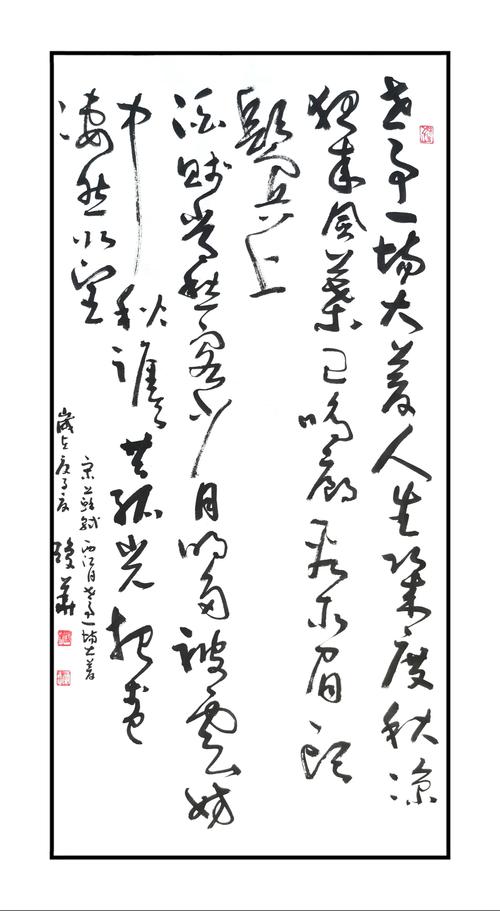 世事一場大夢人生幾度秋涼
夜來風葉已鳴廊看取眉頭
鬢上
酒賤常愁客少月明多被雲妨
中秋誰與共孤光把盞
淒然北望
宋 蘇軾 西江月世事一場大夢
歲在庚子夏